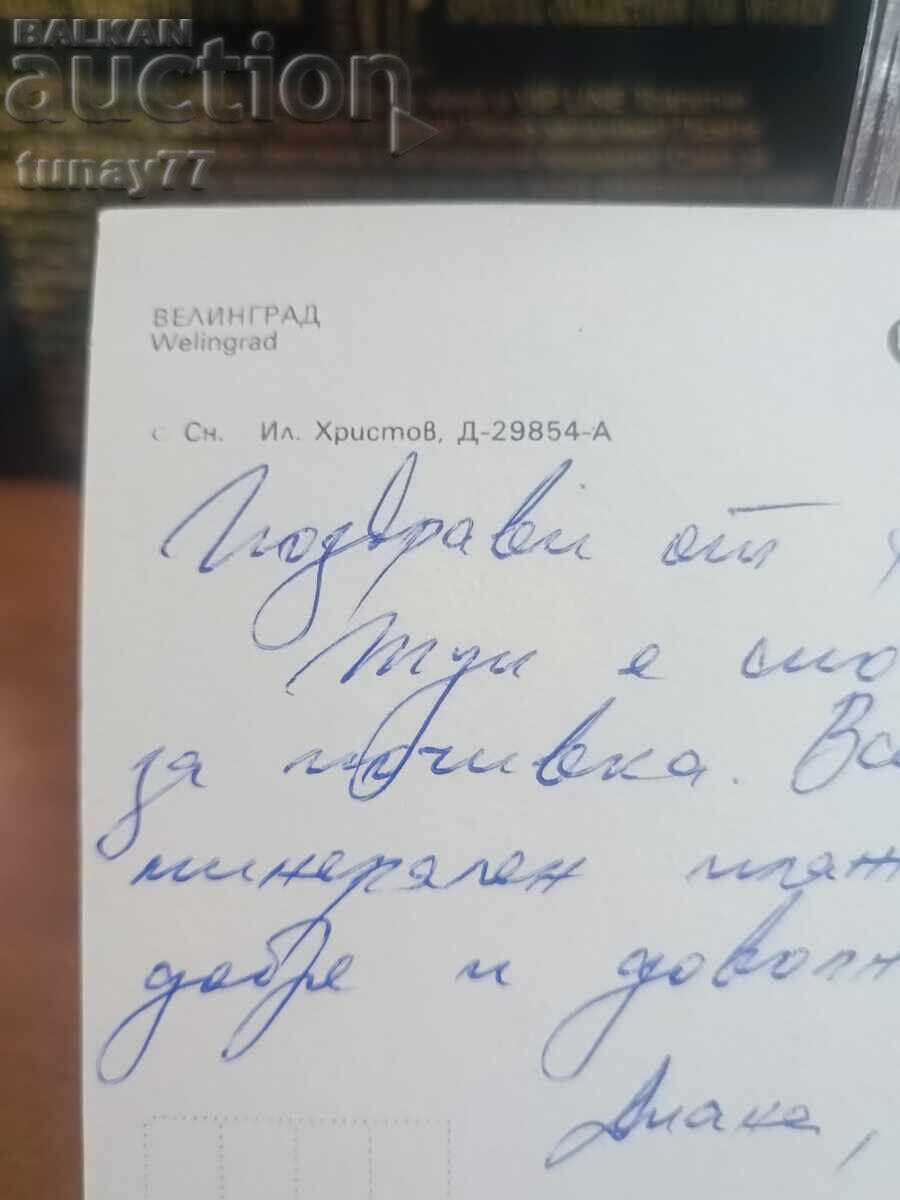 BALKAN
auction
tunay77
ВЕЛИНГРАД
Welingrad
Сн. Ил. Христов, Д-29854-А
Поздрави от
Тук е спо
за почивка. Вс
минерален плаж
добре и доволн